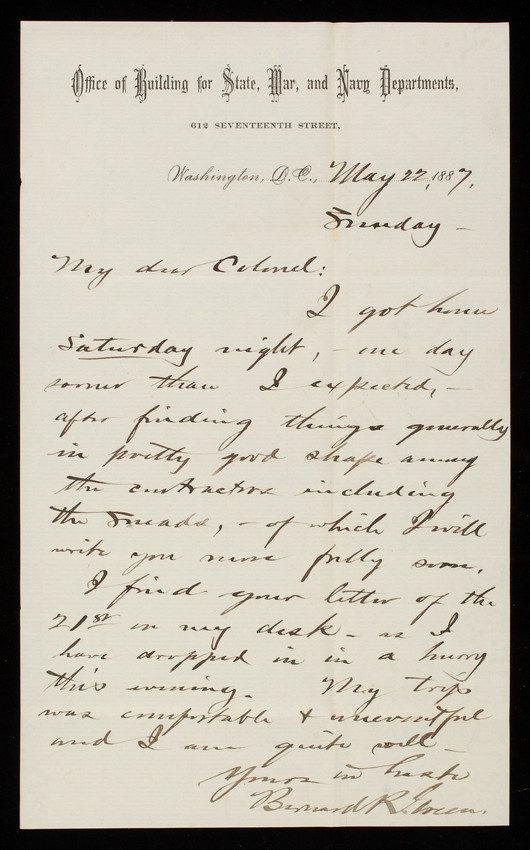 Office of Building for State, War, and Navy Departments,
612 SEVENTEENTH STREET,
Washington, D.C., May 22, 1887,
Sunday –
My dear Colonel:
I got home
Saturday night, – one day
sooner than I expected, –
after finding things generally
in pretty good shape among
the contractors including
the , – of which I will
write you more fully soon.
I find your letter of the
21st on my desk – as I
have dropped in in a hurry
this evening. My trip
was comfortable & uneventful
and I am quite well –
Yours in haste
Bernard R. Green.